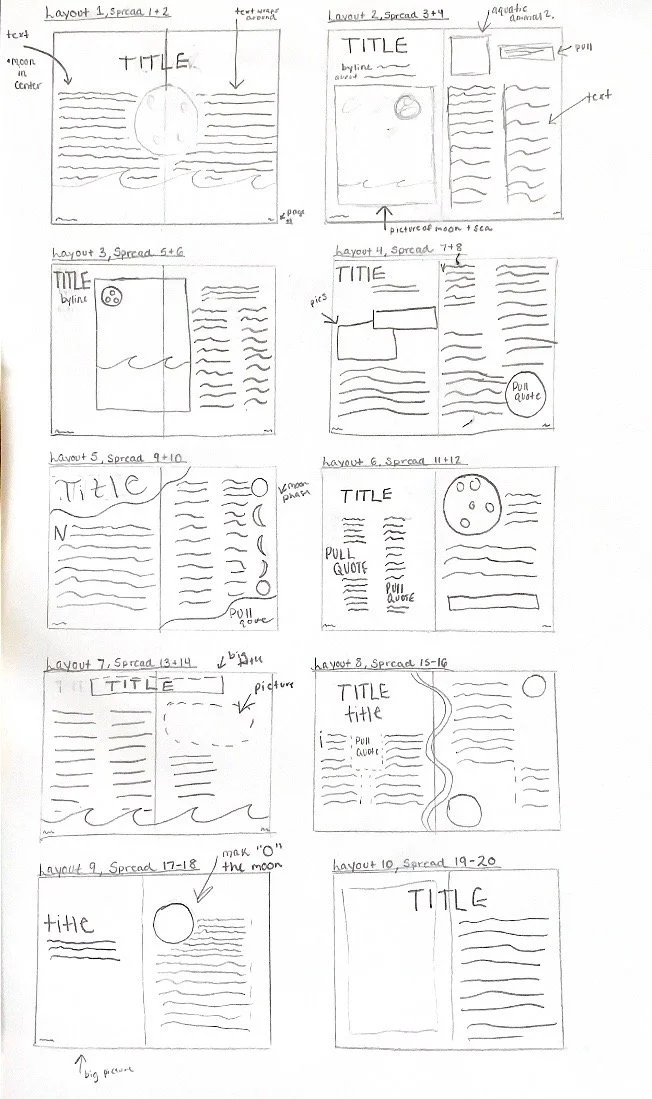 Layout 1, Spread 1+2
text
moon in center
text wraps around
TITLE
page #
Layout 2, Spread 3+4
aquatic animal?
TITLE
byline
pull
text
picture of moon + sea
Layout 3, Spread 5+6
TITLE
byline
Layout 4, Spread 7+8
TITLE
pics
Pull
QUOTE
Layout 5, Spread 9+10
Title
N
moon
phase
PUll
Layout 6, Spread 11+12
TITLE
PULL
QUOTE
PULL
QUOTE
Layout 7, Spread 13+14
big
TITLE
picture
Layout 8, Spread 15-16
TITLE
title
i
Pull
QUOTE
Layout 9, Spread 17-18
mak "O"
the moon
title
big picture
Layout 10, Spread 19-20
TITLE